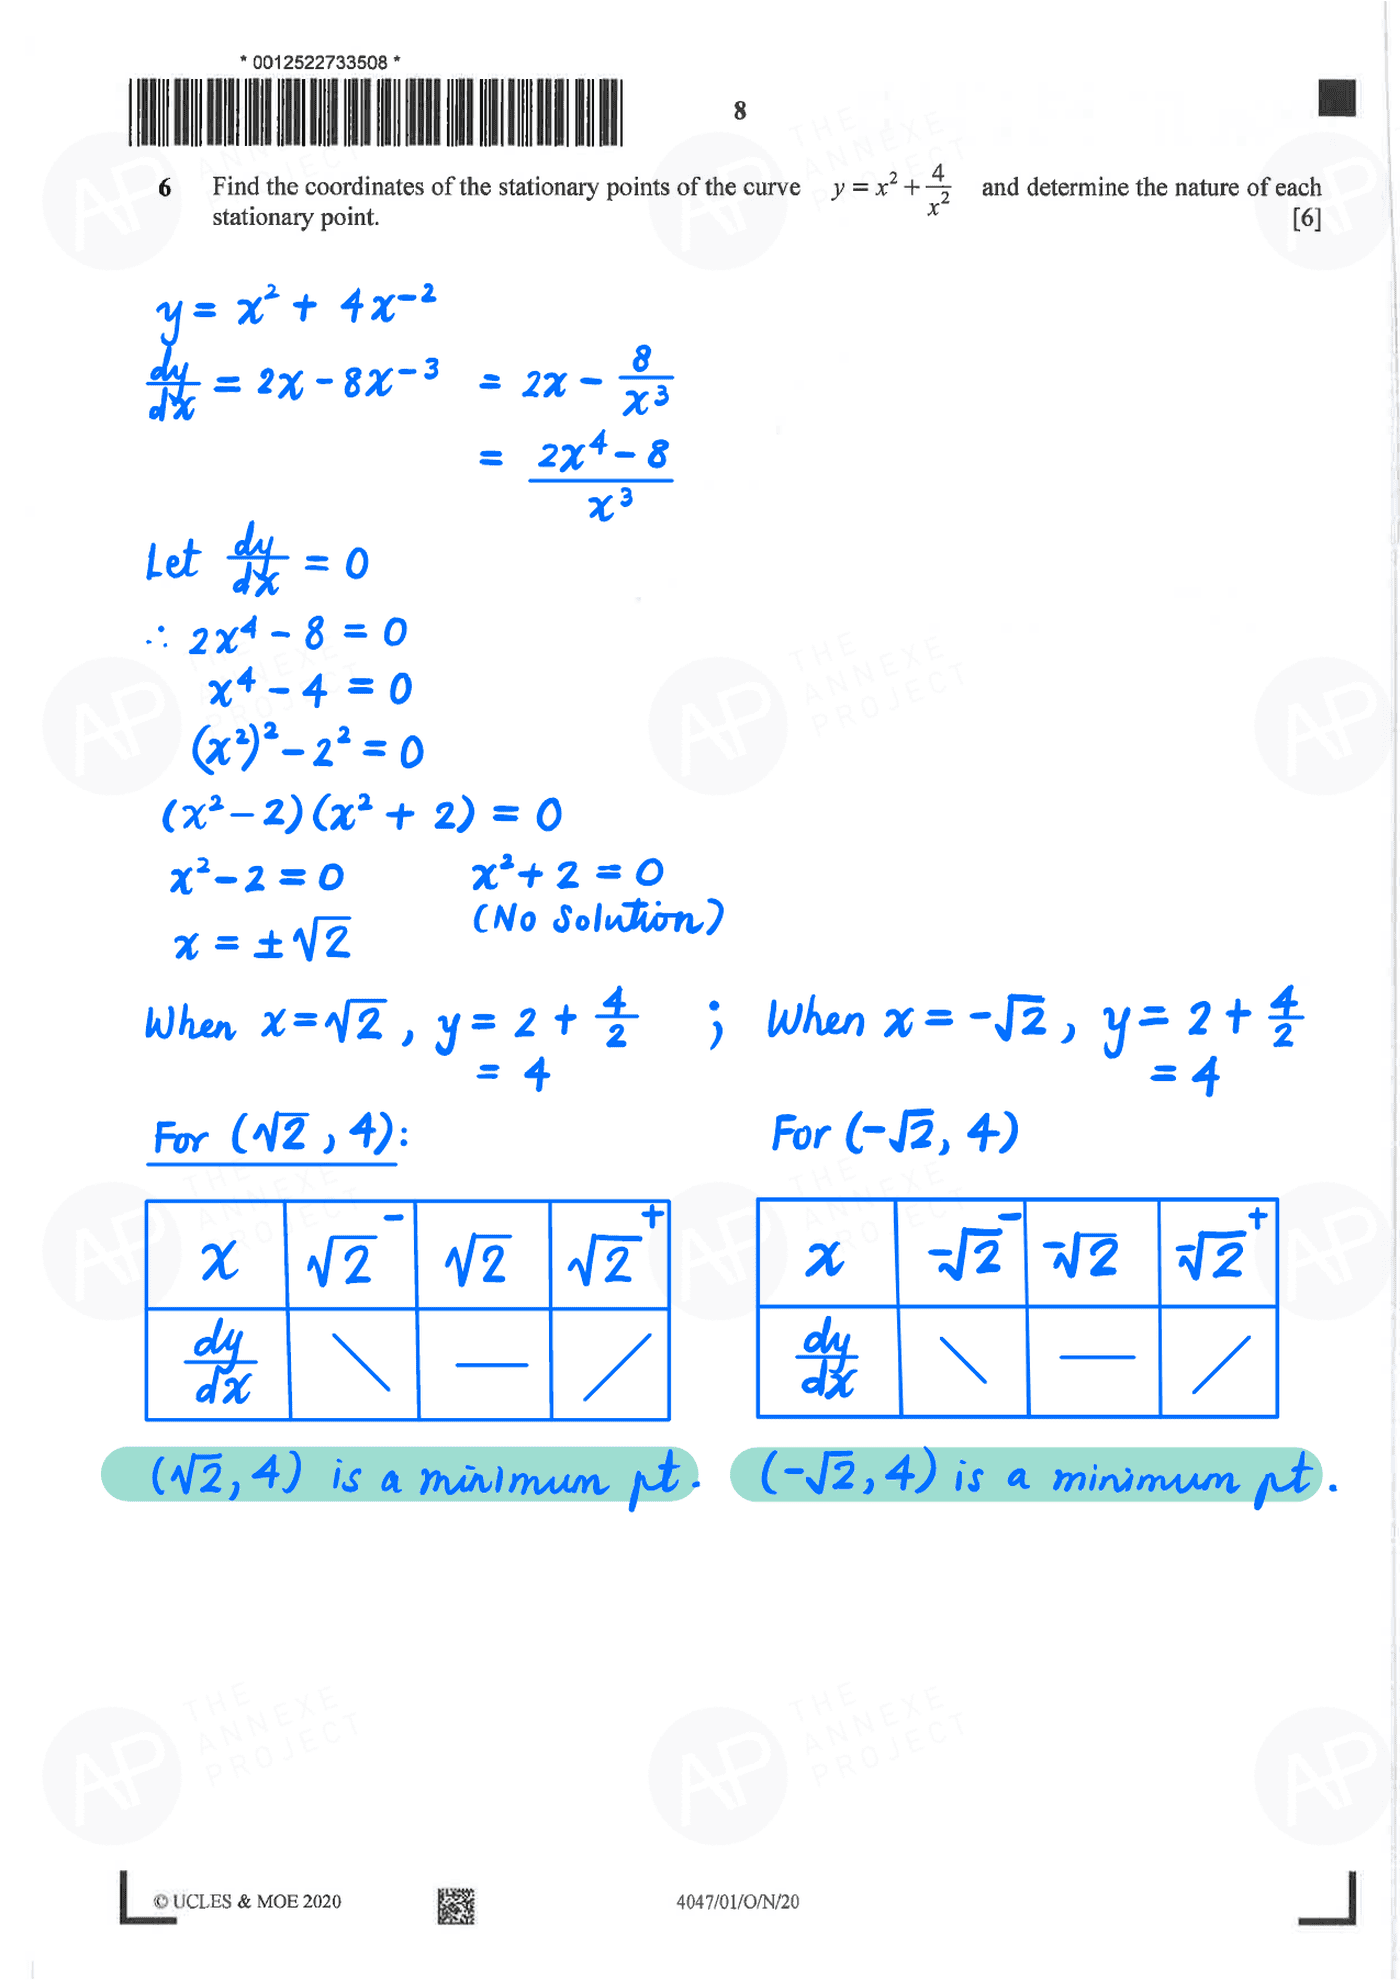 * 0012522733508 *
8
6 Find the coordinates of the stationary points of the curve y = x² + 4/x² and determine the nature of each
stationary point. [6]
y = x² + 4x⁻²
dy/dx = 2x - 8x⁻³ = 2x - 8/x³
= (2x⁴ - 8)/x³
Let dy/dx = 0
∴ 2x⁴ - 8 = 0
x⁴ - 4 = 0
(x²)² - 2² = 0
(x² - 2)(x² + 2) = 0
x² - 2 = 0 x² + 2 = 0
x = ±√2 (No Solution)
When x = √2, y = 2 + 4/2 ; When x = -√2, y = 2 + 4/2
= 4 = 4
For (√2, 4): For (-√2, 4)
x √2⁻ √2 √2⁺ x -√2⁻ -√2 -√2⁺
dy/dx \ — / dy/dx \ — /
(√2, 4) is a minimum pt. (-√2, 4) is a minimum pt.
© UCLES & MOE 2020 4047/01/O/N/20
AP THE ANNEXE PROJECT